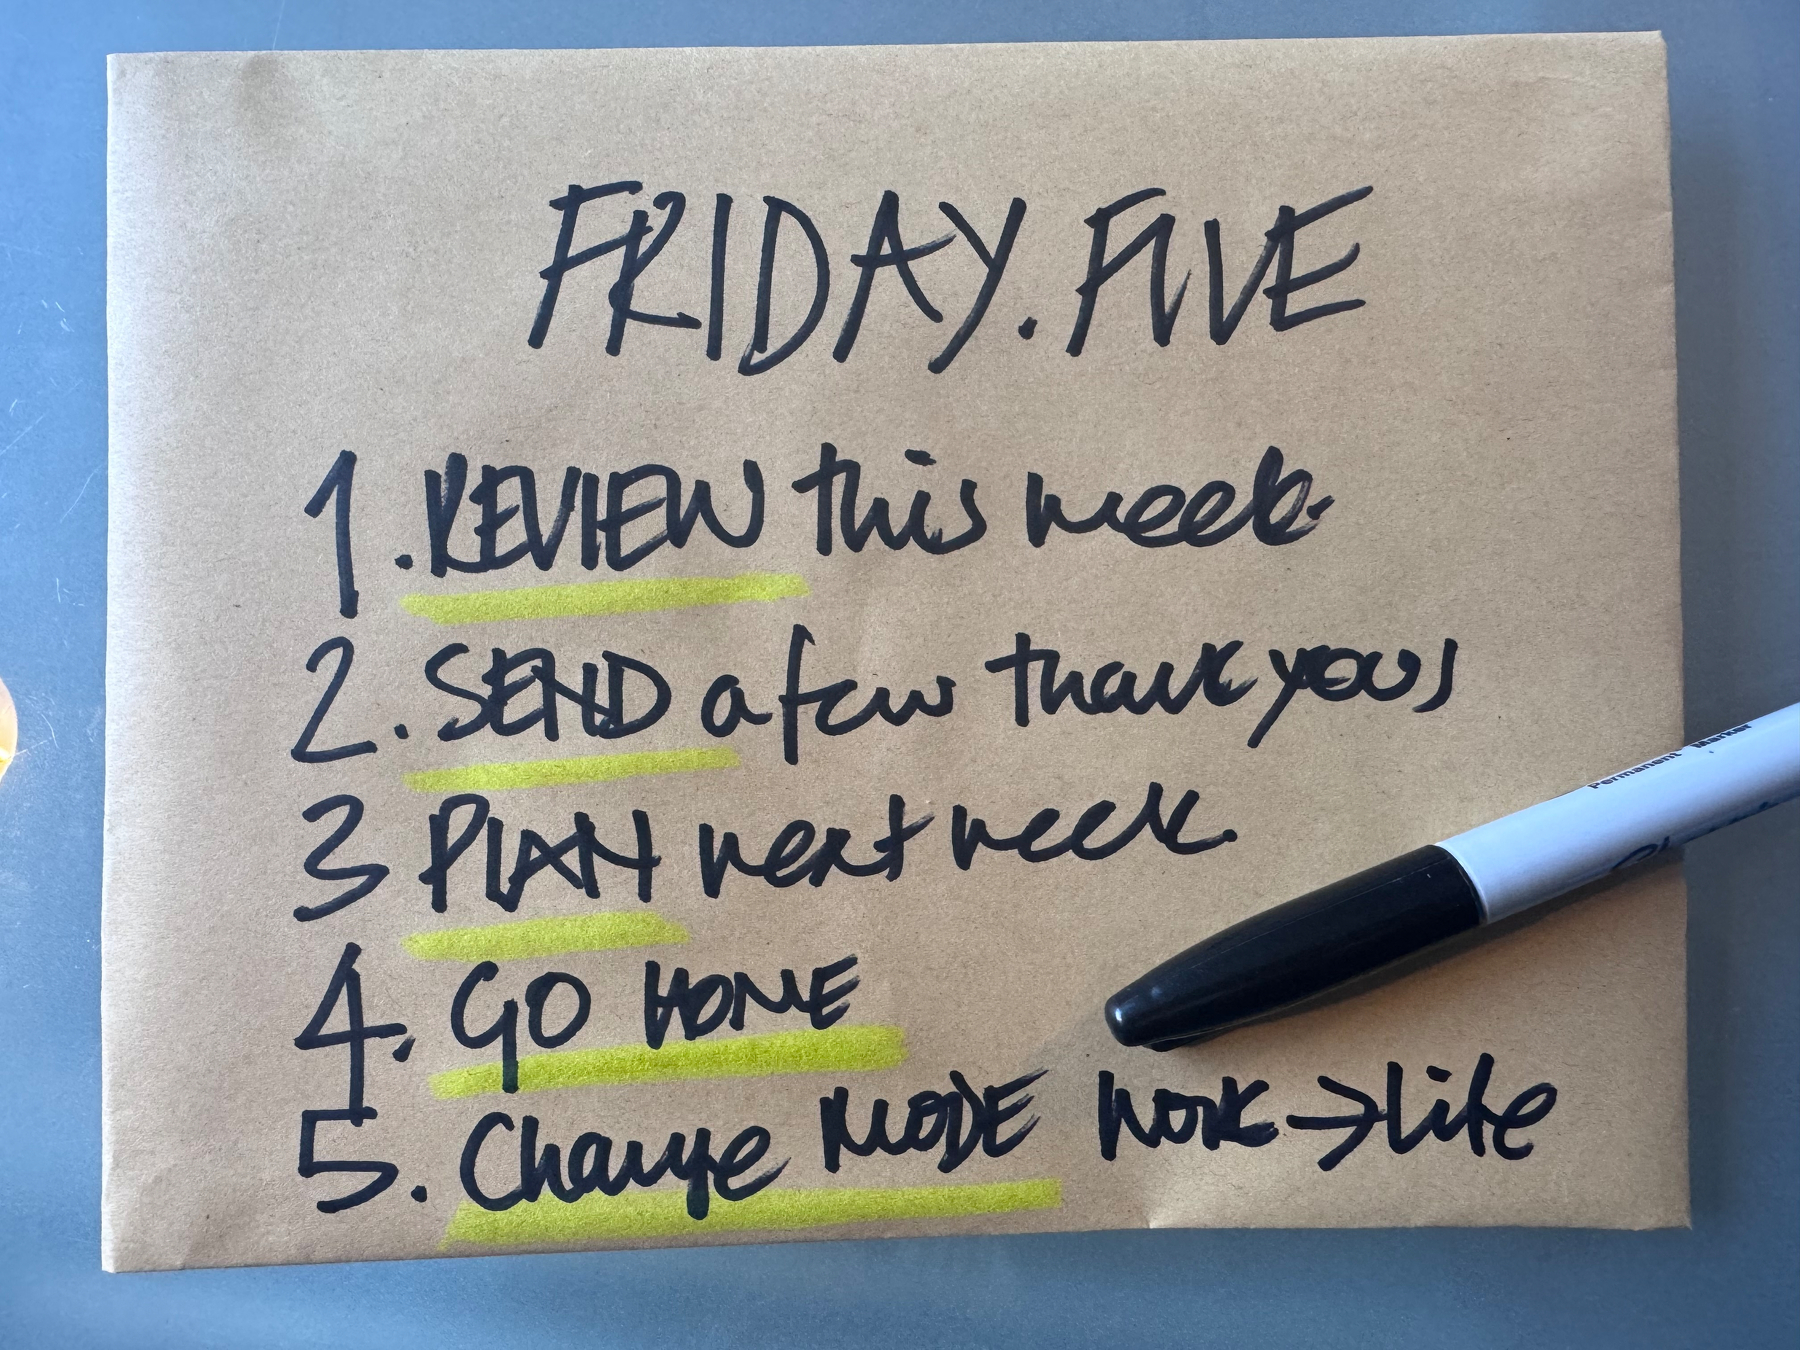 FRIDAY. FIVE
1. REVIEW this week.
2. SEND a few thank yous
3 PLAN next week.
4. GO HOME
5. Change MODE WORK → Life
Permanent Marker